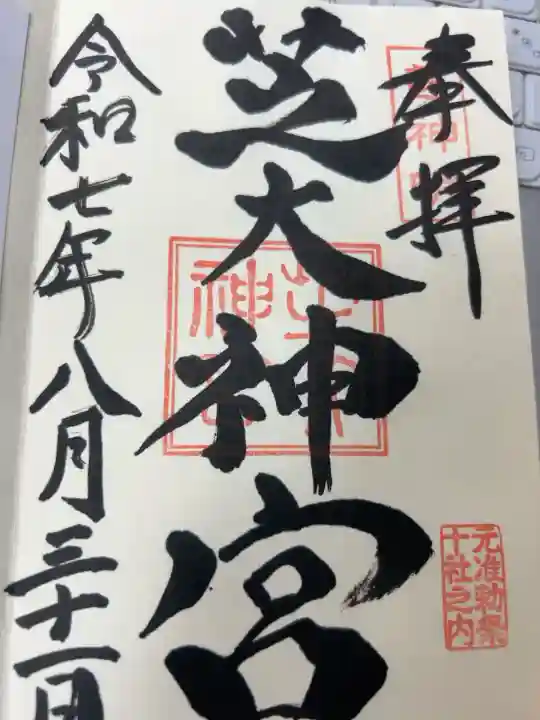 奉拝
芝大神宮
令和七年八月三十一日
元准勅祭
十社之内